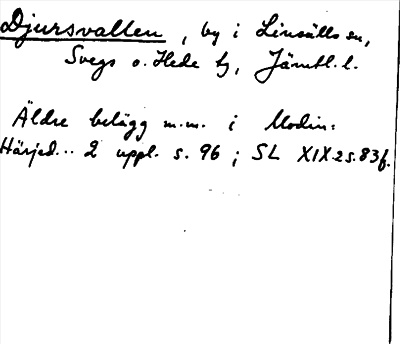 Djursvallen, by i Linsälls sn,
Svegs o. Hede tg, Jämtl. l.
Äldre belägg m.m. i Modin:
Härjed... 2 uppl. s. 96; SL XIX:2 s. 83 f.